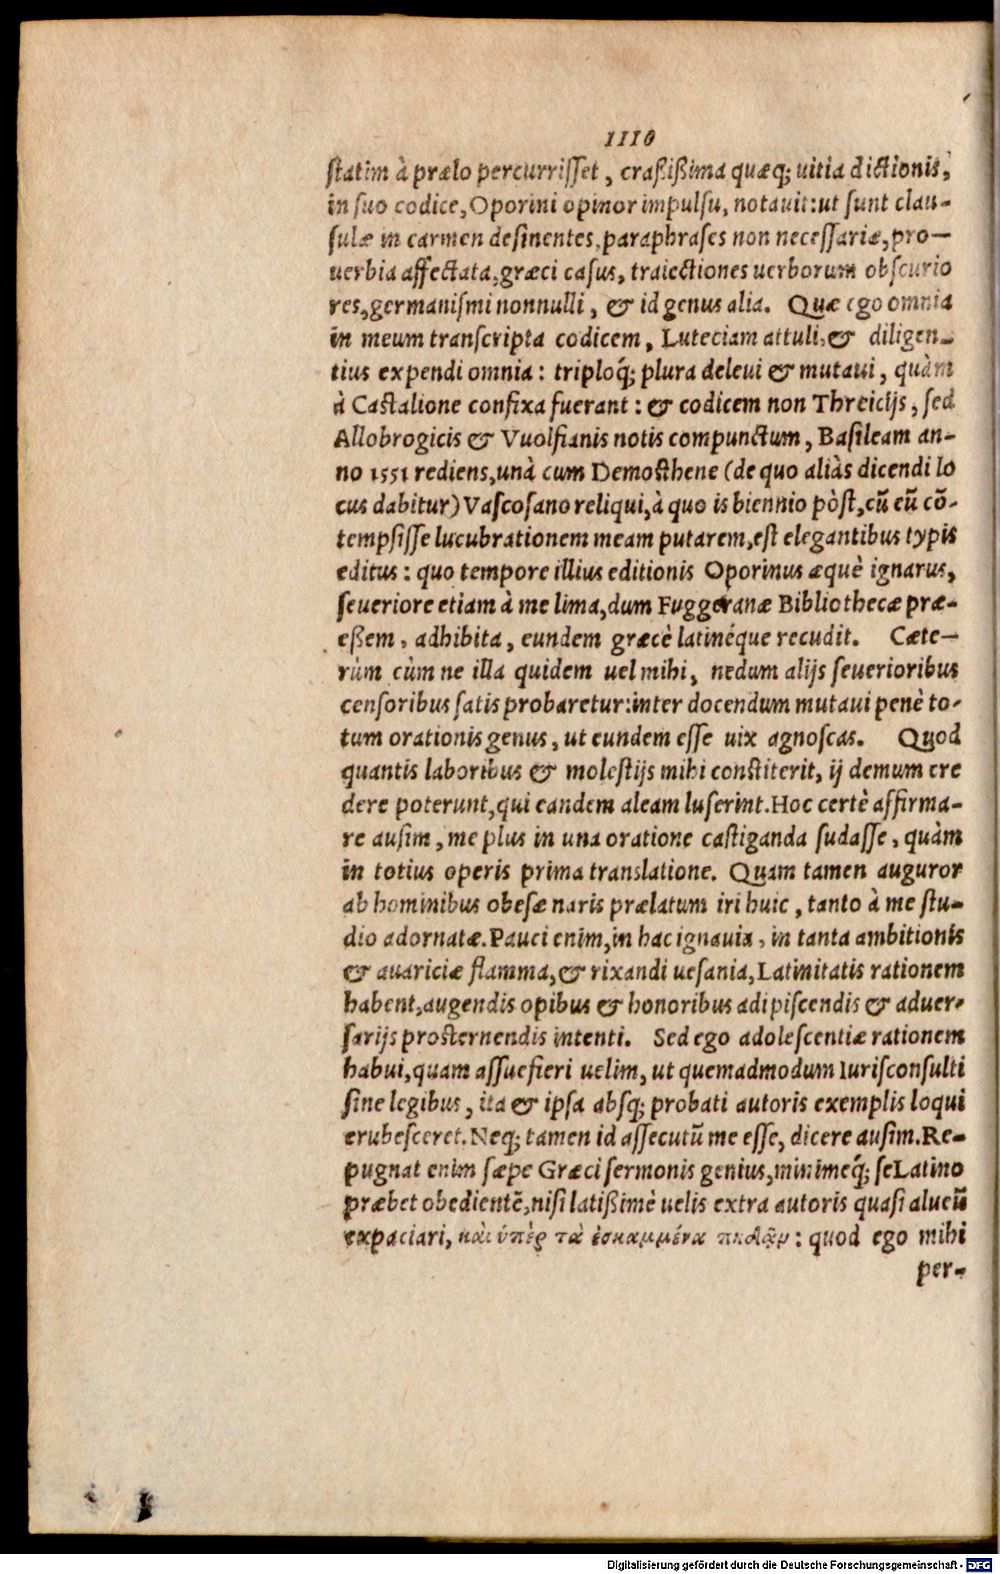 1110
statim à prælo percurrisset, craßißima quæq; uitia dictionis,
in suo codice, Oporini opinor impulsu, notauit: ut sunt clau-
sulæ in carmen desinentes, paraphrases non necessariæ, pro-
uerbia affectata, græci casus, traiectiones uerborum obscurio
res, germanismi nonnulli, & id genus alia. Quæ ego omnia
in meum transcripta codicem, Luteciam attuli, & diligen-
tius expendi omnia: triploq́; plura deleui & mutaui, quàm
à Castalione confixa fuerant: & codicem non Threicijs, sed
Allobrogicis & Vuolfianis notis compunctum, Basileam an-
no 1551 rediens, unà cum Demosthene (de quo aliàs dicendi lo
cus dabitur) Vascosano reliqui, à quo is biennio pòst, cũ eũ cõ-
tempsisse lucubrationem meam putarem, est elegantibus typis
editus: quo tempore illius editionis Oporinus æquè ignarus,
seueriore etiam à me lima, dum Fuggeranæ Bibliothecæ præ-
eßem, adhibita, eundem græcè latinéque recudit. Cæte-
rùm cùm ne illa quidem uel mihi, nedum alijs seuerioribus
censoribus satis probaretur: inter docendum mutaui penè to-
tum orationis genus, ut eundem esse uix agnoscas. Quod
quantis laboribus & molestijs mihi constiterit, ij demum cre
dere poterunt, qui eandem aleam luserint. Hoc certè affirma-
re ausim, me plus in una oratione castiganda sudasse, quàm
in totius operis prima translatione. Quam tamen auguror
ab hominibus obesæ naris prælatum iri huic, tanto à me stu-
dio adornatæ. Pauci enim, in hac ignauia, in tanta ambitionis
& auariciæ flamma, & rixandi uesania, Latinitatis rationem
habent, augendis opibus & honoribus adipiscendis & aduer-
sarijs prosternendis intenti. Sed ego adolescentiæ rationem
habui, quam assuefieri uelim, ut quemadmodum Iurisconsulti
sine legibus, ita & ipsa absq; probati autoris exemplis loqui
erubesceret. Neq; tamen id assecutũ me esse, dicere ausim. Re-
pugnat enim sæpe Græci sermonis genius, minimeq́; se Latino
præbet obedientẽ, nisi latißimè uelis extra autoris quasi alueũ
expaciari, καὶ ὑπὲρ τὰ ἐσκαμμένα πηδᾷν: quod ego mihi
per-
Digitalisierung gefördert durch die Deutsche Forschungsgemeinschaft - DFG